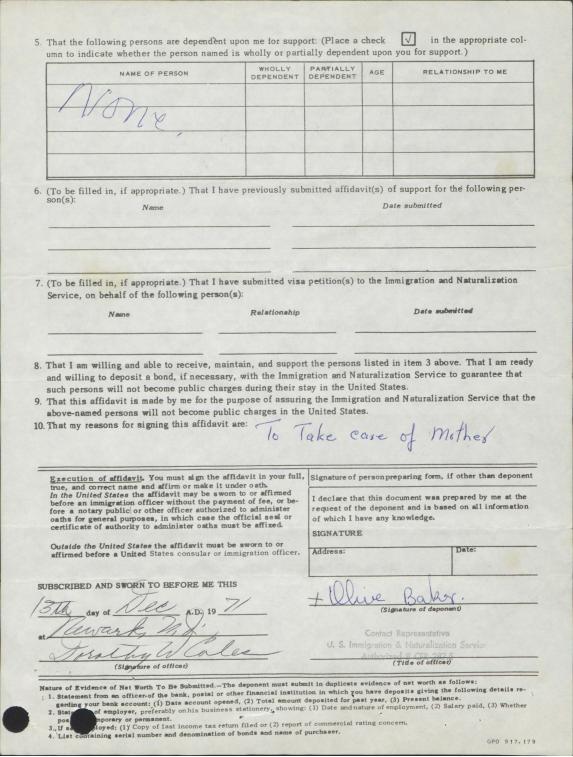 5. That the following persons are dependent upon me for support: (Place a check √ in the appropriate col-
umn to indicate whether the person named is wholly or partially dependent upon you for support.)
NAME OF PERSON WHOLLY DEPENDENT PARTIALLY DEPENDENT AGE RELATIONSHIP TO ME
None
6. (To be filled in, if appropriate.) That I have previously submitted affidavit(s) of support for the following per-
son(s):
Name Date submitted
7. (To be filled in, if appropriate.) That I have submitted visa petition(s) to the Immigration and Naturalization
Service, on behalf of the following person(s):
Name Relationship Date submitted
8. That I am willing and able to receive, maintain, and support the persons listed in item 3 above. That I am ready
and willing to deposit a bond, if necessary, with the Immigration and Naturalization Service to guarantee that
such persons will not become public charges during their stay in the United States.
9. That this affidavit is made by me for the purpose of assuring the Immigration and Naturalization Service that the
above-named persons will not become public charges in the United States.
10. That my reasons for signing this affidavit are: To Take care of Mother
Execution of affidavit. You must sign the affidavit in your full,
true, and correct name and affirm or make it under oath.
In the United States the affidavit may be sworn to or affirmed
before an immigration officer without the payment of fee, or be-
fore a notary public or other officer authorized to administer
oaths for general purposes, in which case the official seal or
certificate of authority to administer oaths must be affixed.
Outside the United States the affidavit must be sworn to or
affirmed before a United States consular or immigration officer.
Signature of person preparing form, if other than deponent
I declare that this document was prepared by me at the
request of the deponent and is based on all information
of which I have any knowledge.
SIGNATURE
Address: Date:
SUBSCRIBED AND SWORN TO BEFORE ME THIS
13th day of Dec A.D. 19 71
at Newark N.J.
Dorothy W Coles
(Signature of officer)
+ Olive Baker.
(Signature of deponent)
Contact Representative
U. S. Immigration & Naturalization Service
Authorized 8 CFR
(Title of officer)
Nature of Evidence of Net Worth To Be Submitted.—The deponent must submit in duplicate evidence of net worth as follows:
1. Statement from an officer of the bank, postal or other financial institution in which you have deposits giving the following details re-
garding your bank account: (1) Date account opened, (2) Total amount deposited for past year, (3) Present balance.
2. of employer, preferably on his business stationery, showing: (1) Date and nature of employment, (2) Salary paid, (3) Whether
or permanent.
3. (1) Copy of last income tax return filed or (2) report of commercial rating concern.
4. List containing serial number and denomination of bonds and name of purchaser.
GPO 917-179